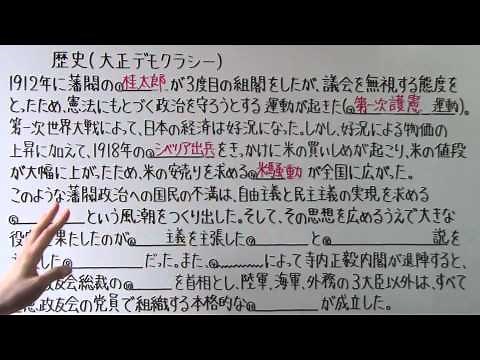 歴史(大正デモクラシー)
1912年に藩閥の@桂太郎が3度目の組閣をしたが、議会を無視する態度を
とったため、憲法にもとづく政治を守ろうとする運動が起きた(@第一次護憲運動)。
第一次世界大戦によって、日本の経済は好況になった。しかし、好況による物価の
上昇に加えて、1918年の@シベリア出兵をきっかけに米の買いしめが起こり、米の値段
が大幅に上がったため、米の安売りを求める@米騒動が全国に広がった。
このような藩閥政治への国民の不満は、自由主義と民主主義の実現を求める
@という風潮をつくり出した。そして、その思想を広めるうえで大きな
役を果たしたのが@主義を主張した@と@説を
した@だった。また、@によって寺内正毅内閣が退陣すると、
政友会総裁の@を首相とし、陸軍、海軍、外務の3大臣以外は、すべて
政友会の党員で組織する本格的な@が成立した。